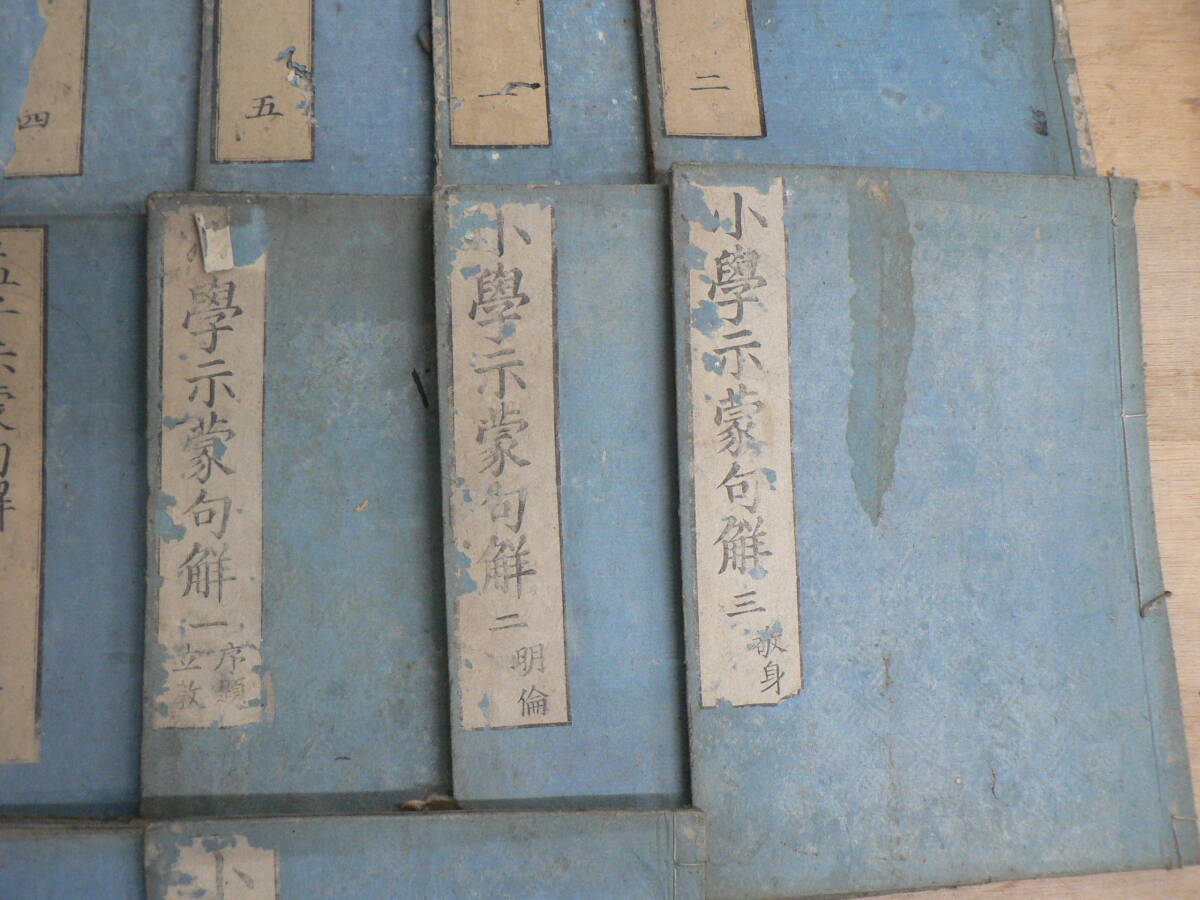 二
一
五
四
小學示蒙句觧三
敬身
小學示蒙句觧二
明倫
學示蒙句觧一
序題
立教
示蒙句解
小